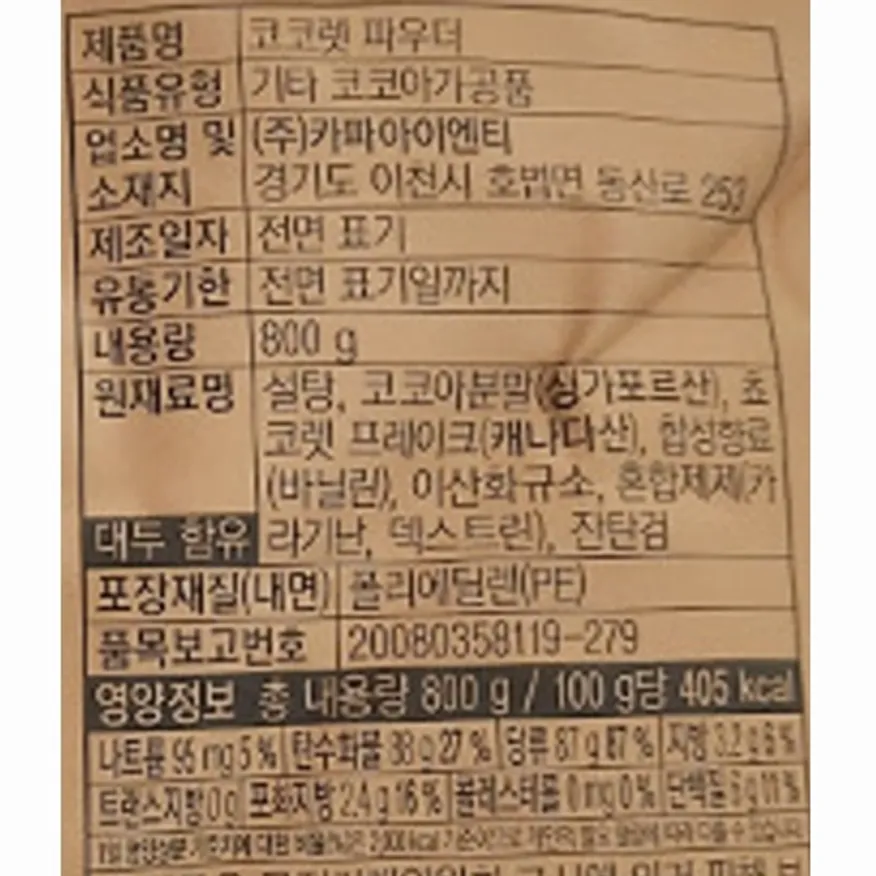 제품명 코코렛 파우더
식품유형 기타 코코아가공품
업소명 및 (주)카파아이엔티
소재지 경기도 이천시 호법면 동산로 253
제조일자 전면 표기
유통기한 전면 표기일까지
내용량 800 g
원재료명 설탕, 코코아분말(싱가포르산), 쵸
코렛 프레이크(캐나다산), 합성향료
(바닐린), 이산화규소, 혼합제제(카
대두 함유 라기난, 덱스트린), 잔탄검
포장재질(내면) 폴리에틸렌(PE)
품목보고번호 20080358119-279
영양정보 총 내용량 800 g / 100 g당 405 kcal
나트륨 95 mg 5 % 탄수화물 g 27 % 당류 87 g 87 % 지방 3.2 g 6 %
트랜스지방 0 g 포화지방 2.4 g 16 % 콜레스테롤 0 mg 0 % 단백질 6 g 11 %
1일 영양성분 기준치에 대한 비율(%)은 2,000 kcal 기준이므로 개인의 필요 열량에 따라 다를 수 있습니다